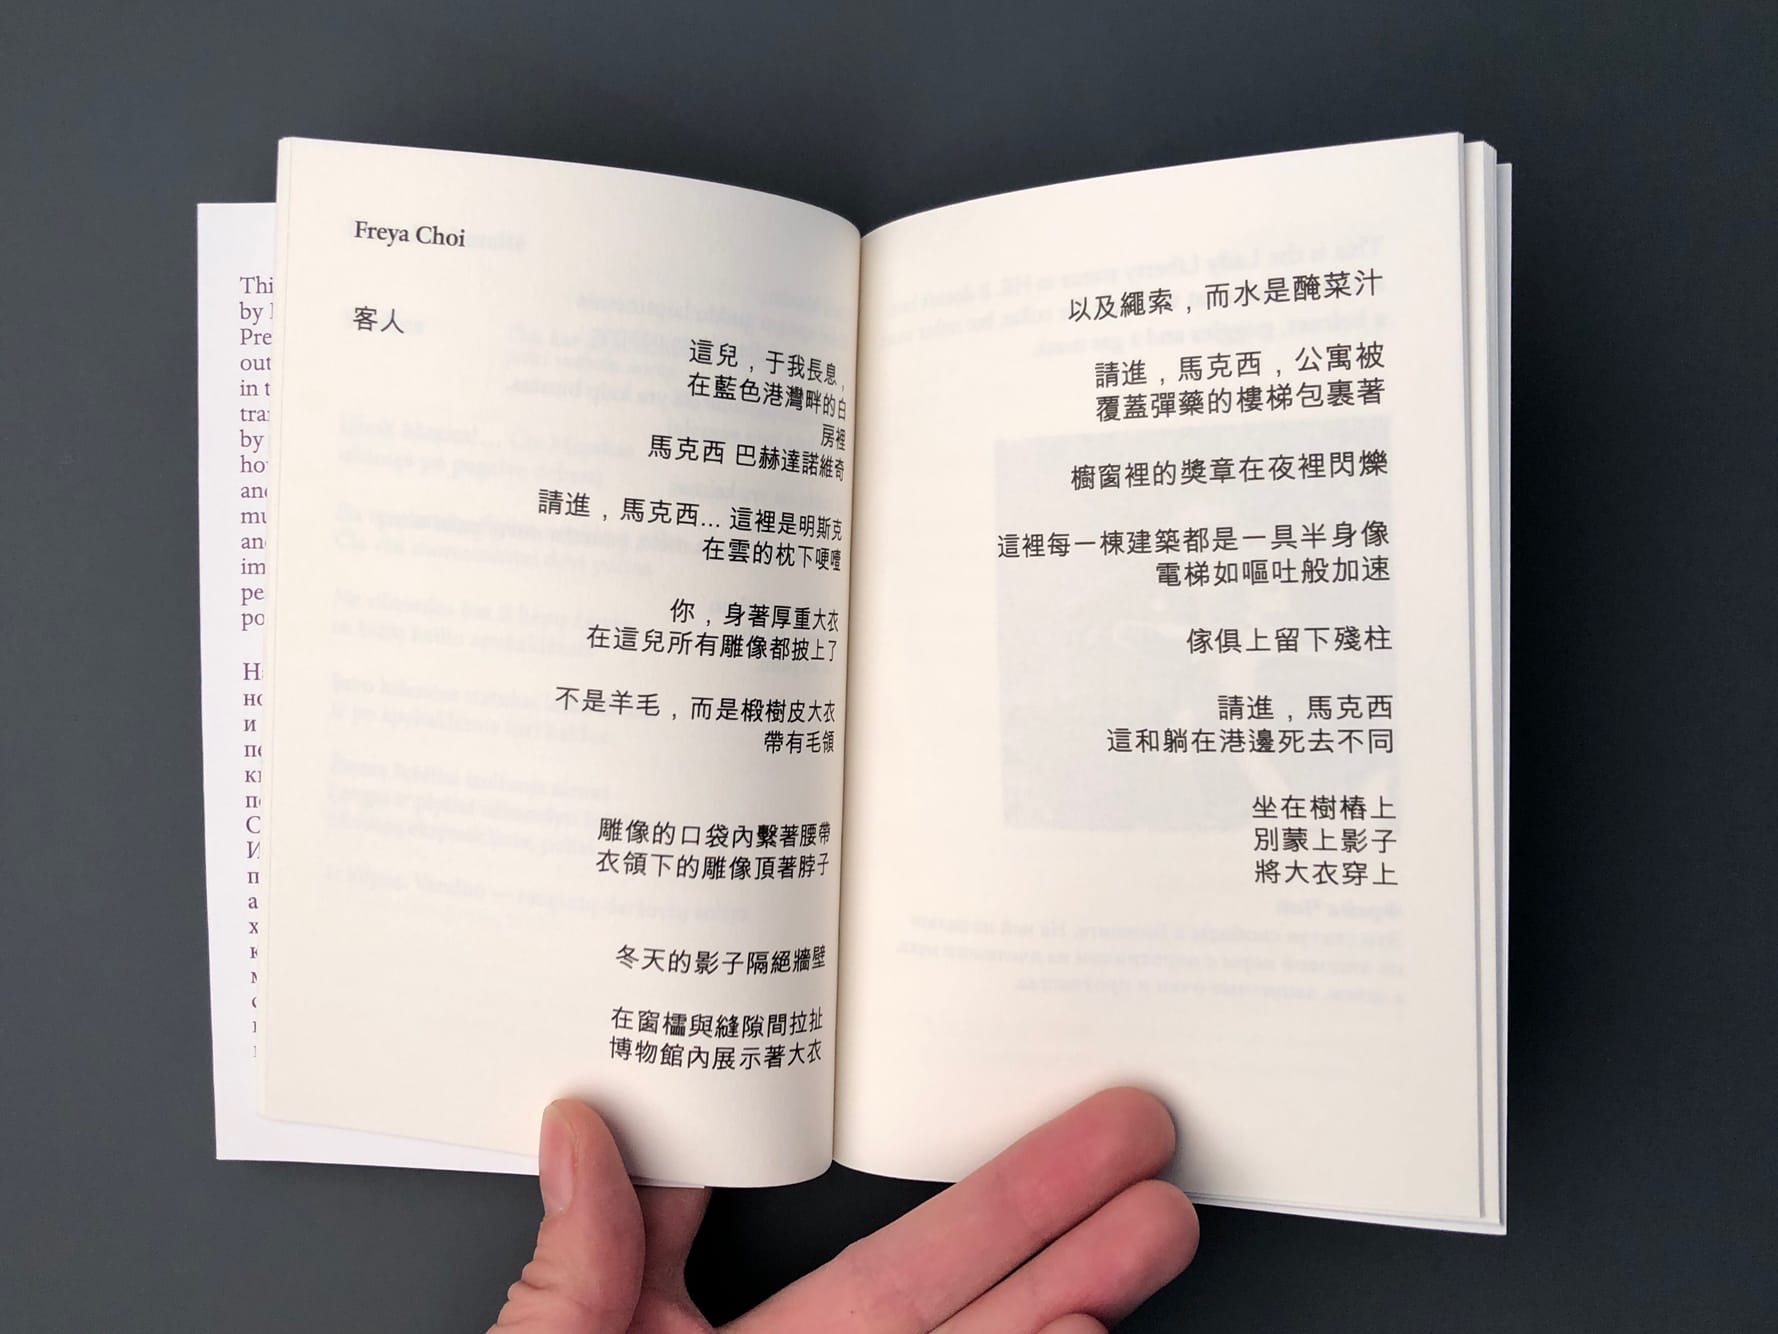 Thi
by
Pre
out
in t
tra
by
ho
and
mu
and
im
pe
po
но
и
Freya Choi
客人
這兒，于我長息，
在藍色港灣畔的白
房裡
馬克西 巴赫達諾維奇
請進，馬克西... 這裡是明斯克
在雲的枕下哽噎
你，身著厚重大衣
在這兒所有雕像都披上了
不是羊毛，而是椴樹皮大衣
帶有毛領
雕像的口袋內繫著腰帶
衣領下的雕像頂著脖子
冬天的影子隔絕牆壁
在窗櫺與縫隙間拉扯
博物館內展示著大衣
以及繩索，而水是醃菜汁
請進，馬克西，公寓被
覆蓋彈藥的樓梯包裹著
櫥窗裡的獎章在夜裡閃爍
這裡每一棟建築都是一具半身像
電梯如嘔吐般加速
傢俱上留下殘柱
請進，馬克西
這和躺在港邊死去不同
坐在樹樁上
別蒙上影子
將大衣穿上